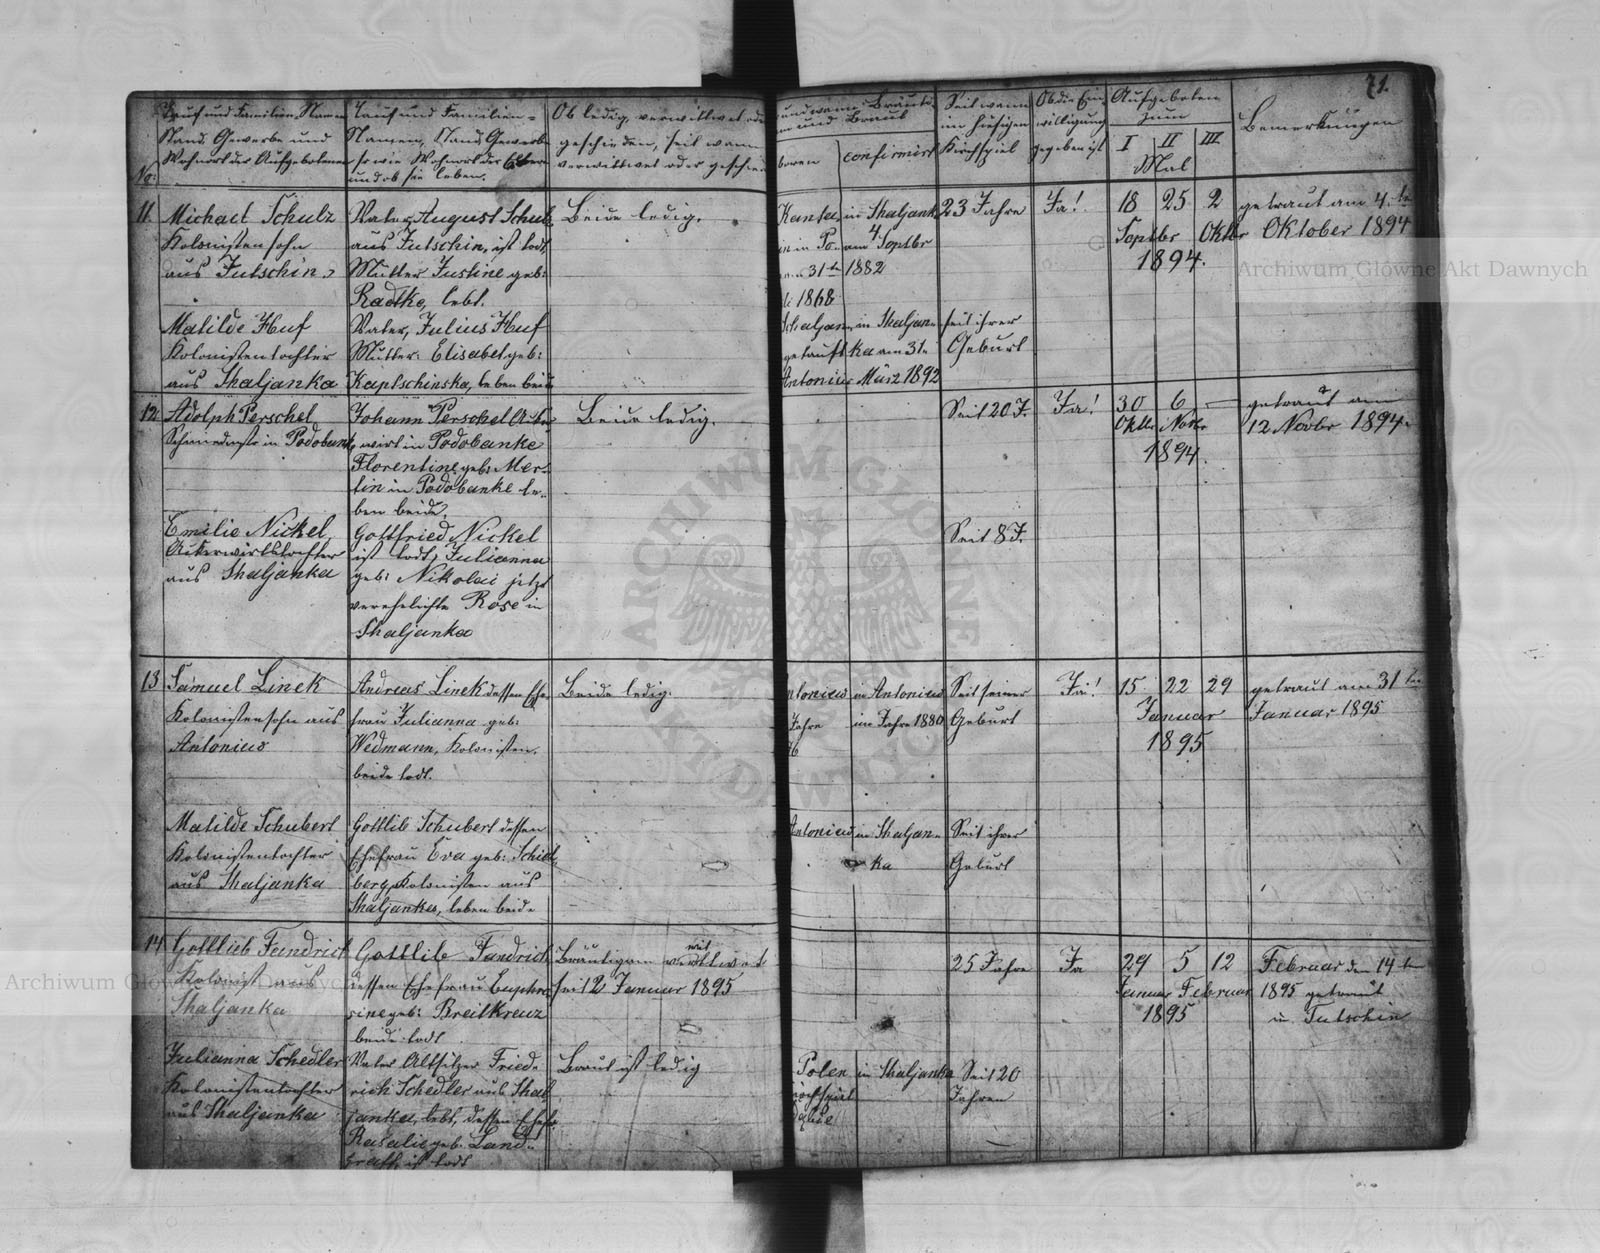 71.
No:
Tauf und Familien Namen
Stand, Gewerbe und
Wohnort der Aufgebotenen
Tauf und Familien-
Namen, Stand, Gewerbe
so wie Wohnort der Eltern
und ob sie leben.
Ob ledig, verwittwet oder
geschieden, seit wann
verwittwet oder geschieden
und wann Bräuti-
und Braut
boren
confirmirt
Seit wann
im hiesigen
Kirchspiel
Ob die Ein-
willigung
gegeben ist
Aufgeboten
zum
I II III
Mal
Bemerkungen
11.
Michael Schulz
Kolonistensohn
aus Tutschin,
Vater, August Schulz
aus Tutschin, ist todt,
Mutter Justine geb:
Radtke, lebt.
Beide ledig.
in Po-
31te
1868
in Shaljank
am 4 Septbr
1882
23 Jahre
Ja!
18 25 2
Septbr Oktbr
1894.
getraut am 4.te
Oktober 1894
Matilde Huf
Kolonistentochter
aus Shaljanka
Vater, Julius Huf
Mutter: Elisabet geb:
Kaptschinska, leben beide
getauft
Antonius
in Shaljan-
ka am 31te
März 1892
seit ihrer
Geburt
12.
Adolph Perschel
in Podobank
Johann Perschel Acker
wirt in Podobanke
Florentine geb: Mer-
tin in Podobanke le-
ben beide.
Beide ledig.
Seit 20 J.
Ja!
30 6 —
Oktbr Novbr
1894.
getraut am
12 Novbr 1894.
Emilie Nickel,
Ackerwirtstochter
aus Shaljanka
Gottfried Nickel
ist todt, Julianna
geb: Nikolai jetzt
verehelichte Rose in
Shaljanka
Seit 8 J.
13
Samuel Linek
Kolonistensohn aus
Antonius
Andreas Linek dessen Ehe-
frau Julianna geb:
Wedmann, Kolonisten,
beide todt.
Beide ledig.
Antonius
Jahre
76
in Antonius
im Jahre 1880
Seit seiner
Geburt
Ja!
15 22 29
Januar
1895
getraut am 31ten
Januar 1895
Matilde Schubert
Kolonistentochter
aus Shaljanka
Gottlib Schubert dessen
Ehefrau Eva geb: Schiel
berg, Kolonisten aus
Shaljanka, leben beide
Antonius
in Shaljan-
ka
Seit ihrer
Geburt
14.
Gottlieb Fandrich
Kolonist aus
Shaljanka
Gottlib Fandrich
dessen Ehefrau Euphro
sine geb: Breitkreuz
beide todt
Bräutigam verwittwet
seit 2 Januar 1895
25 Jahre
Ja
29 5 12
Januar Februar
1895
Februar den 14ten
1895 getraut
in Tutschin
Julianna Schedler
Kolonistentochter
aus Shaljanka
Vater Altsitzer Fried-
rich Schedler aus Shal
janka, lebt, dessen Ehefr.
Rasalie geb. Land-
graff, ist todt
Braut ist ledig
Polen
Kirchspiel
in Shaljanka
Seit 20
Jahren
Archiwum Główne Akt Dawnych
Archiwum Główne Akt Dawnych
ARCHIWUM GŁÓWNE
AKT DAWNYCH